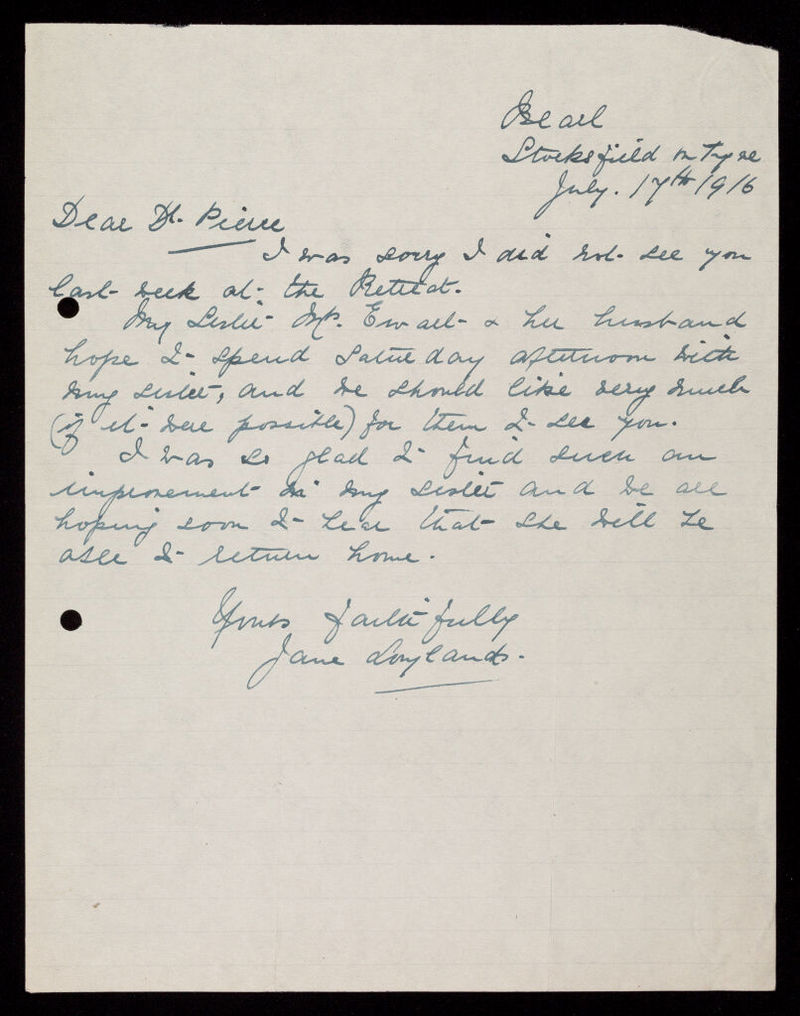 Bearl
Stocksfield on Tyne
July. 17th 1916
Dear Dr. Pierce
I was sorry I did not see you
last week at the Retreat.
My sister Mrs. Ewart & her husband
hope to spend Saturday afternoon with
my sister, and we should like very much
(if it were possible) for them to see you.
I was so glad to find such an
improvement in my sister and we are
hoping soon to hear that she will be
able to return home.
Yours faithfully
Jane